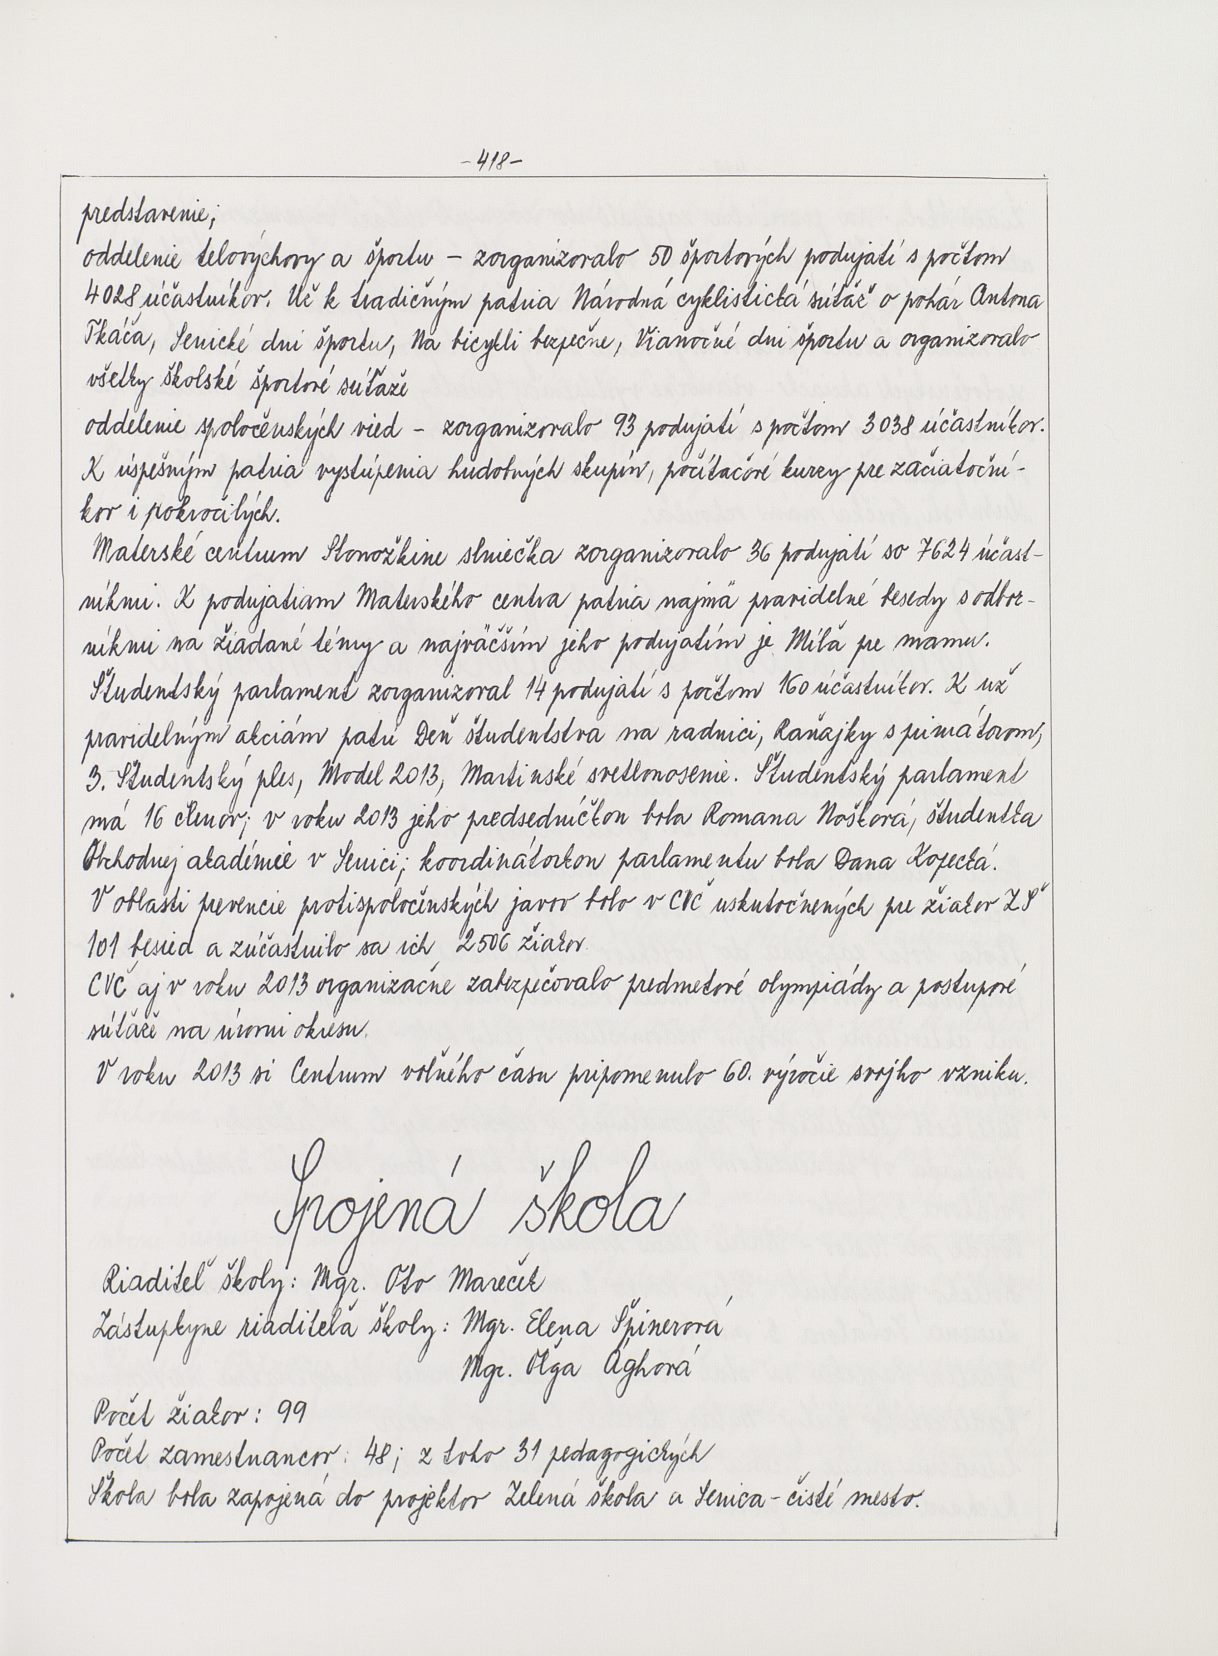 -418-
predstavenie;
oddelenie telovýchovy a športu - zorganizovalo 50 športových podujatí s počtom
4028 účastníkov. Už k tradičným patria Národná cyklistická súťaž o pohár Antona
Tkáča, Senické dni športu, Na bicykli bezpečne, Vianočné dni športu a organizovalo
všetky školské športové súťaže
oddelenie spoločenských vied - zorganizovalo 93 podujatí s počtom 3038 účastníkov.
K úspešným patria vystúpenia hudobných skupín, počítačové kurzy pre začiatoční-
kov i pokročilých.
Materské centrum Stonožkine slniečka zorganizovalo 36 podujatí so 7624 účast-
níkmi. K podujatiam Materského centra patria najmä pravidelné besedy s odbor-
níkmi na žiadané témy a najväčším jeho podujatím je Míľa pre mamu.
Študentský parlament zorganizoval 14 podujatí s počtom 160 účastníkov. K už
pravidelným akciám patrí Deň študentstva na radnici, Raňajky s primátorom,
3. Študentský ples, Model 2013, Martinské svetlonosenie. Študentský parlament
má 16 členov; v roku 2013 jeho predsedníčkou bola Romana Nošková, študentka
Obchodnej akadémie v Senici; koordinátorkou parlamentu bola Dana Kopecká.
V oblasti prevencie protispoločenských javov bolo v CVČ uskutočnených pre žiakov ZŠ
101 besied a zúčastnilo sa ich 2506 žiakov.
CVČ aj v roku 2013 organizačne zabezpečovalo predmetové olympiády a postupové
súťaže na úrovni okresu.
V roku 2013 si Centrum voľného času pripomenulo 60. výročie svojho vzniku.
Spojená škola
Riaditeľ školy: Mgr. Oto Mareček
Zástupkyne riaditeľa školy: Mgr. Elena Špinerová
Mgr. Oľga Ághová
Počet žiakov: 99
Počet zamestnancov: 48; z toho 31 pedagogických
Škola bola zapojená do projektov Zelená škola a Senica - čisté mesto.